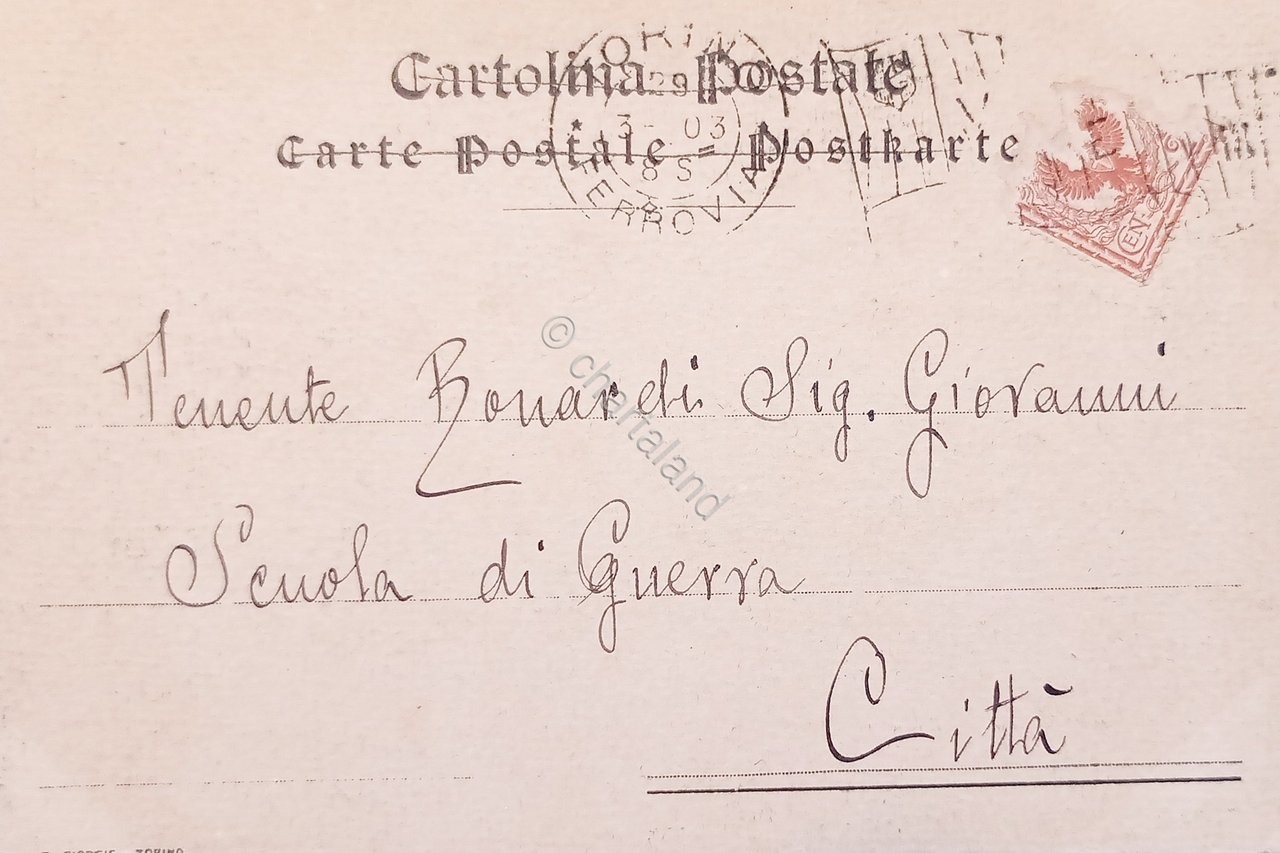 Cartolina Postale
Carte Postale = Postkarte
TORINO
29
3 - 03
8 S
FERROVIA
CEN
Tenente Bonardi Sig. Giovanni
Scuola di Guerra
Città
© chartaland
TORINO